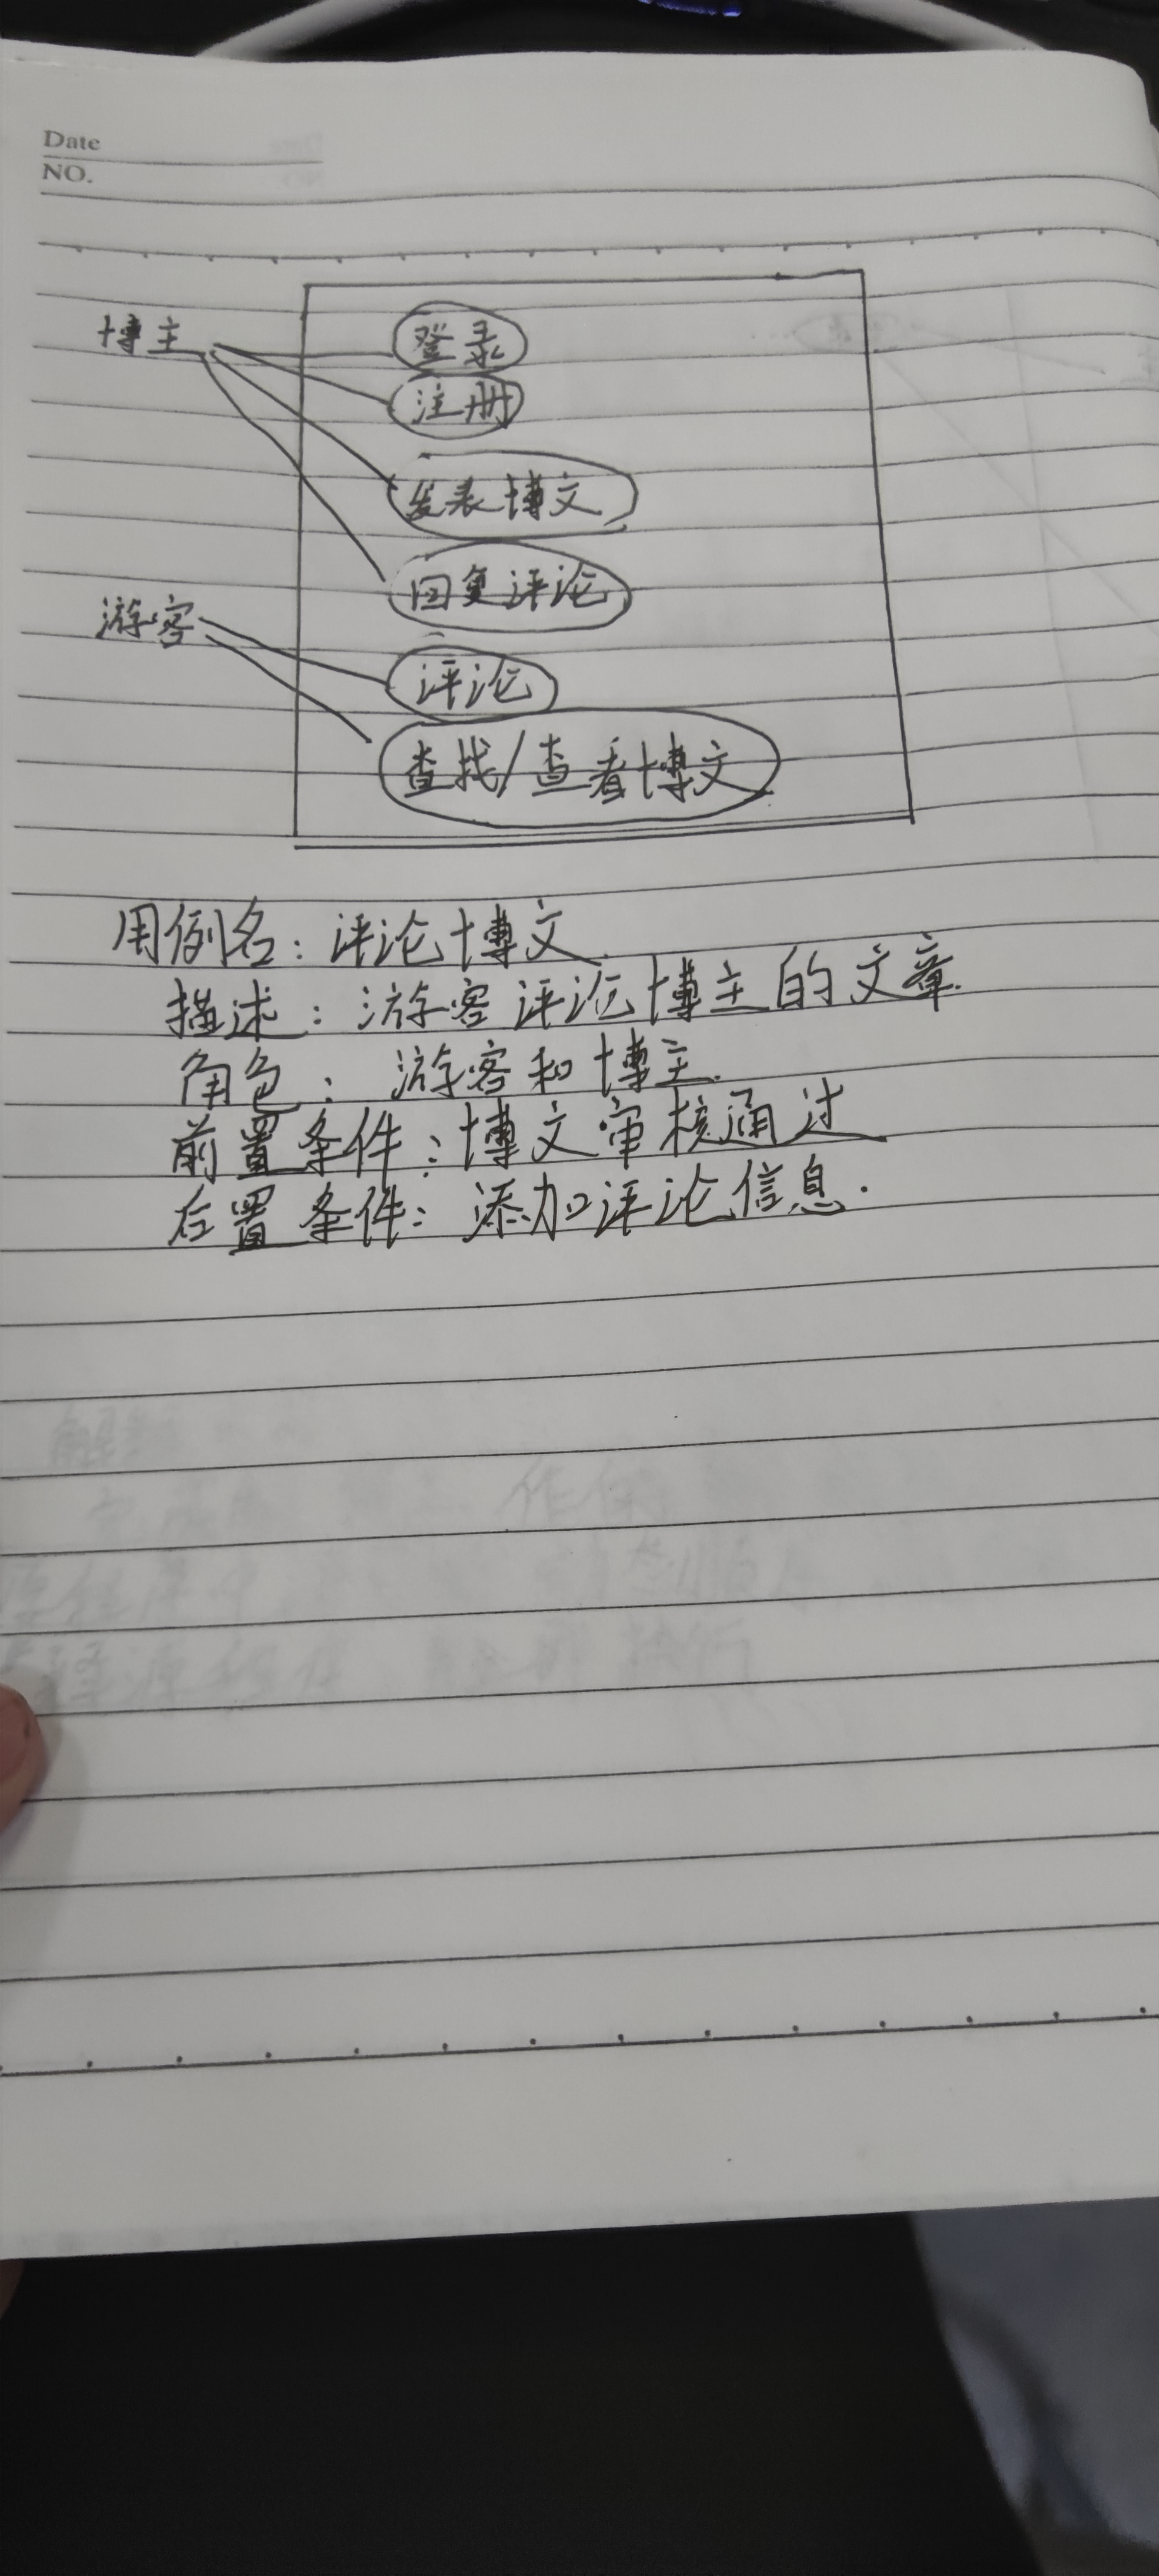 Date
NO.
博主
登录
注册
发表博文
回复评论
游客
评论
查找/查看博文
用例名：评论博文
描述：游客评论博主的文章.
角色：游客和博主.
前置条件：博文审核通过
右置条件：添加评论信息.